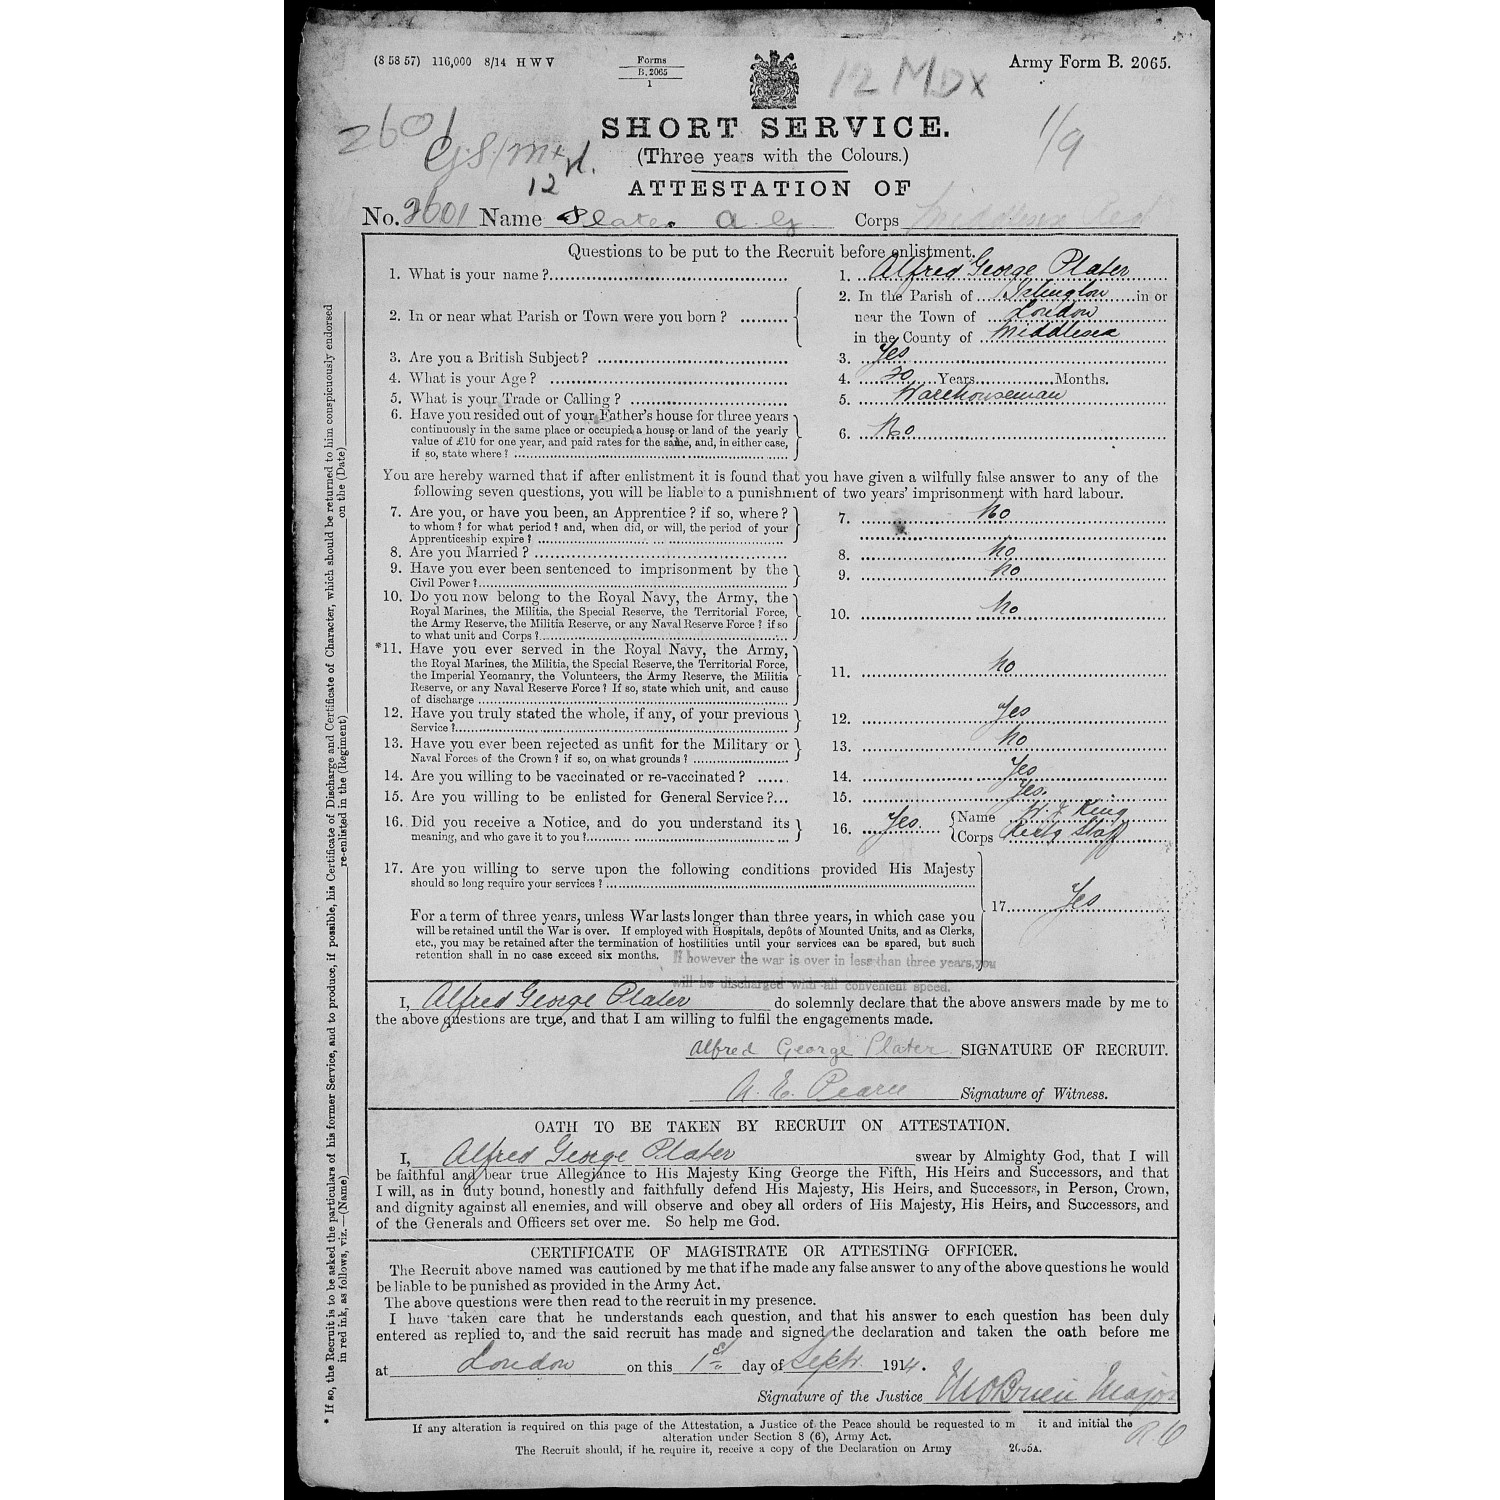 (8 58 57) 116,000 8/14 H W V
Forms
B. 2065
1
Army Form B. 2065.
12 MDX
2601
GS/Mx
1/9
SHORT SERVICE.
(Three years with the Colours.)
12
ATTESTATION OF
No. 2601 Name Plater A G Corps Middlesex Regt
Questions to be put to the Recruit before enlistment.
1. What is your name? 1. Alfred George Plater
2. In or near what Parish or Town were you born? 2. In the Parish of Islington in or
near the Town of London
in the County of Middlesex
3. Are you a British Subject? 3. Yes
4. What is your Age? 4. 20 Years Months.
5. What is your Trade or Calling? 5. Warehouseman
6. Have you resided out of your Father's house for three years
continuously in the same place or occupied a house or land of the yearly
value of £10 for one year, and paid rates for the same, and, in either case,
if so, state where? 6. No
You are hereby warned that if after enlistment it is found that you have given a wilfully false answer to any of the
following seven questions, you will be liable to a punishment of two years' imprisonment with hard labour.
7. Are you, or have you been, an Apprentice? if so, where? 7. No
to whom? for what period? and, when did, or will, the period of your
Apprenticeship expire?
8. Are you Married? 8. No
9. Have you ever been sentenced to imprisonment by the
Civil Power? 9. No
10. Do you now belong to the Royal Navy, the Army, the
Royal Marines, the Militia, the Special Reserve, the Territorial Force,
the Army Reserve, the Militia Reserve, or any Naval Reserve Force? if so
to what unit and Corps? 10. No
*11. Have you ever served in the Royal Navy, the Army,
the Royal Marines, the Militia, the Special Reserve, the Territorial Force,
the Imperial Yeomanry, the Volunteers, the Army Reserve, the Militia
Reserve, or any Naval Reserve Force? If so, state which unit, and cause
of discharge 11. No
12. Have you truly stated the whole, if any, of your previous
Service? 12. Yes
13. Have you ever been rejected as unfit for the Military or
Naval Forces of the Crown? if so, on what grounds? 13. No
14. Are you willing to be vaccinated or re-vaccinated? 14. Yes
15. Are you willing to be enlisted for General Service? 15. Yes.
16. Did you receive a Notice, and do you understand its
meaning, and who gave it to you? 16. Yes. Name W. J. King
Corps Rectg Staff
17. Are you willing to serve upon the following conditions provided His Majesty
should so long require your services?
For a term of three years, unless War lasts longer than three years, in which case you 17. Yes
will be retained until the War is over. If employed with Hospitals, depôts of Mounted Units, and as Clerks,
etc., you may be retained after the termination of hostilities until your services can be spared, but such
retention shall in no case exceed six months. If however the war is over in less than three years, you
will be discharged with all convenient speed.
I, Alfred George Plater do solemnly declare that the above answers made by me to
the above questions are true, and that I am willing to fulfil the engagements made.
Alfred George Plater SIGNATURE OF RECRUIT.
A. E. Pearce Signature of Witness.
OATH TO BE TAKEN BY RECRUIT ON ATTESTATION.
I, Alfred George Plater swear by Almighty God, that I will
be faithful and bear true Allegiance to His Majesty King George the Fifth, His Heirs and Successors, and that
I will, as in duty bound, honestly and faithfully defend His Majesty, His Heirs, and Successors, in Person, Crown,
and dignity against all enemies, and will observe and obey all orders of His Majesty, His Heirs, and Successors, and
of the Generals and Officers set over me. So help me God.
CERTIFICATE OF MAGISTRATE OR ATTESTING OFFICER.
The Recruit above named was cautioned by me that if he made any false answer to any of the above questions he would
be liable to be punished as provided in the Army Act.
The above questions were then read to the recruit in my presence.
I have taken care that he understands each question, and that his answer to each question has been duly
entered as replied to, and the said recruit has made and signed the declaration and taken the oath before me
at London on this 1st day of Sept. 1914.
Signature of the Justice O'Brien Major
If any alteration is required on this page of the Attestation, a Justice of the Peace should be requested to m it and initial the
alteration under Section 8 (6), Army Act.
RO
The Recruit should, if he require it, receive a copy of the Declaration on Army 2065A.
* If so, the Recruit is to be asked the particulars of his former Service, and to produce, if possible, his Certificate of Discharge and Certificate of Character, which should be returned to him conspicuously endorsed
in red ink, as follows, viz.—(Name) re-enlisted in the (Regiment) on the (Date)